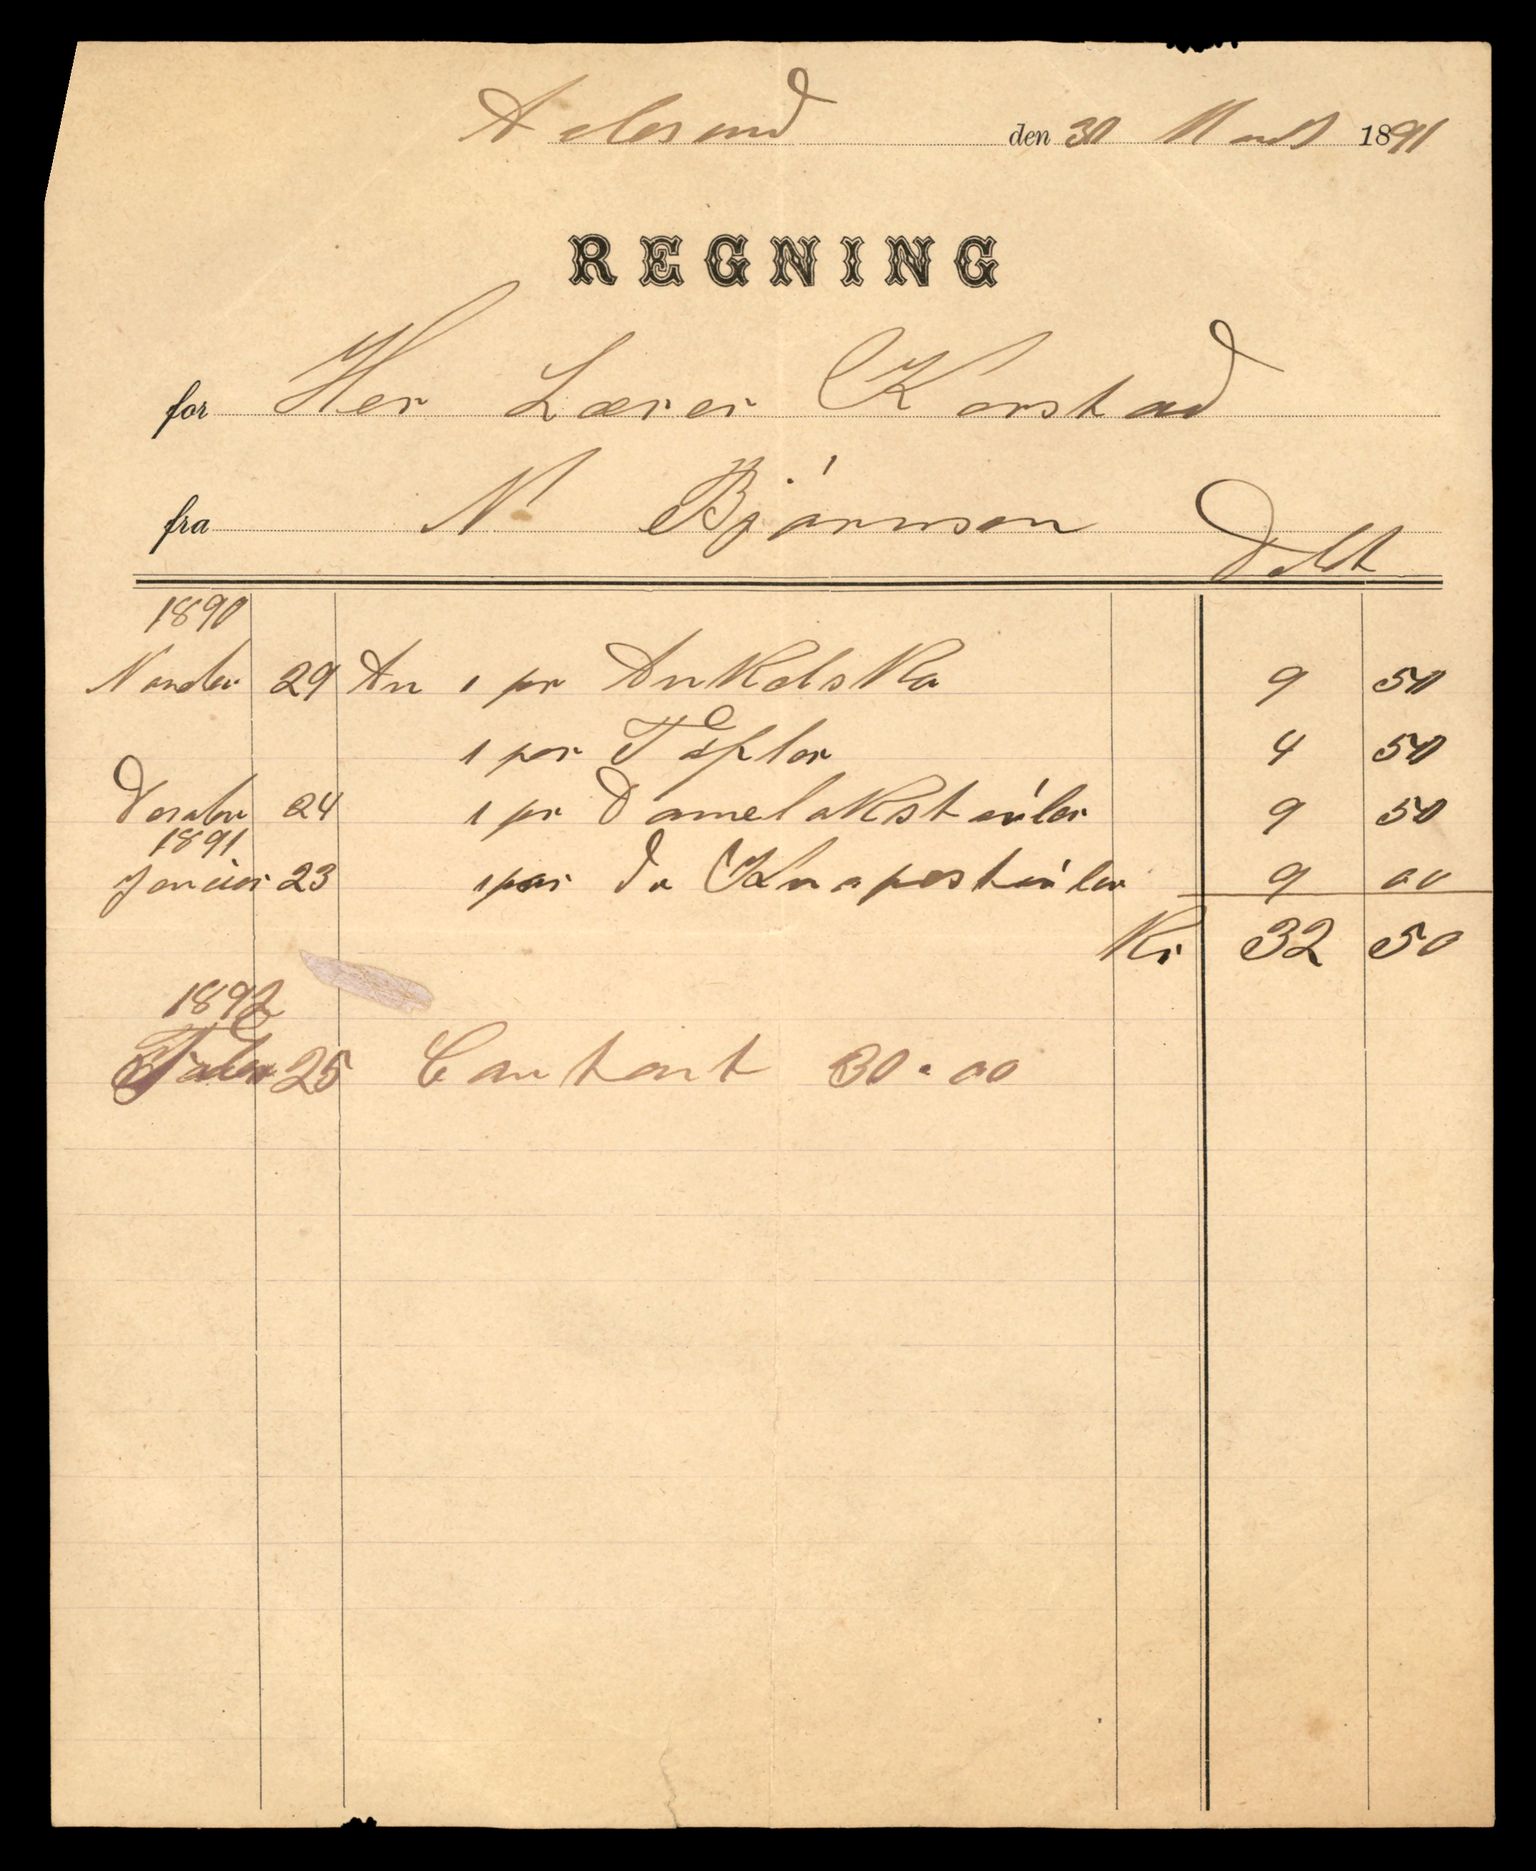 Aalesund den 30 Marts 1891
REGNING
for Her Lærer Korstad
fra N Bjørnson Debt
1890
Novnber 29 An 1 pr Ankelsko 9 50
1 par Tøfler 4 50
Desaber 24 1 pr Damelakstøvler 9 50
1891
Januar 23 1 par do Knapestøvler 9 00
Kr 32 50
1892
25 Contant 30.00